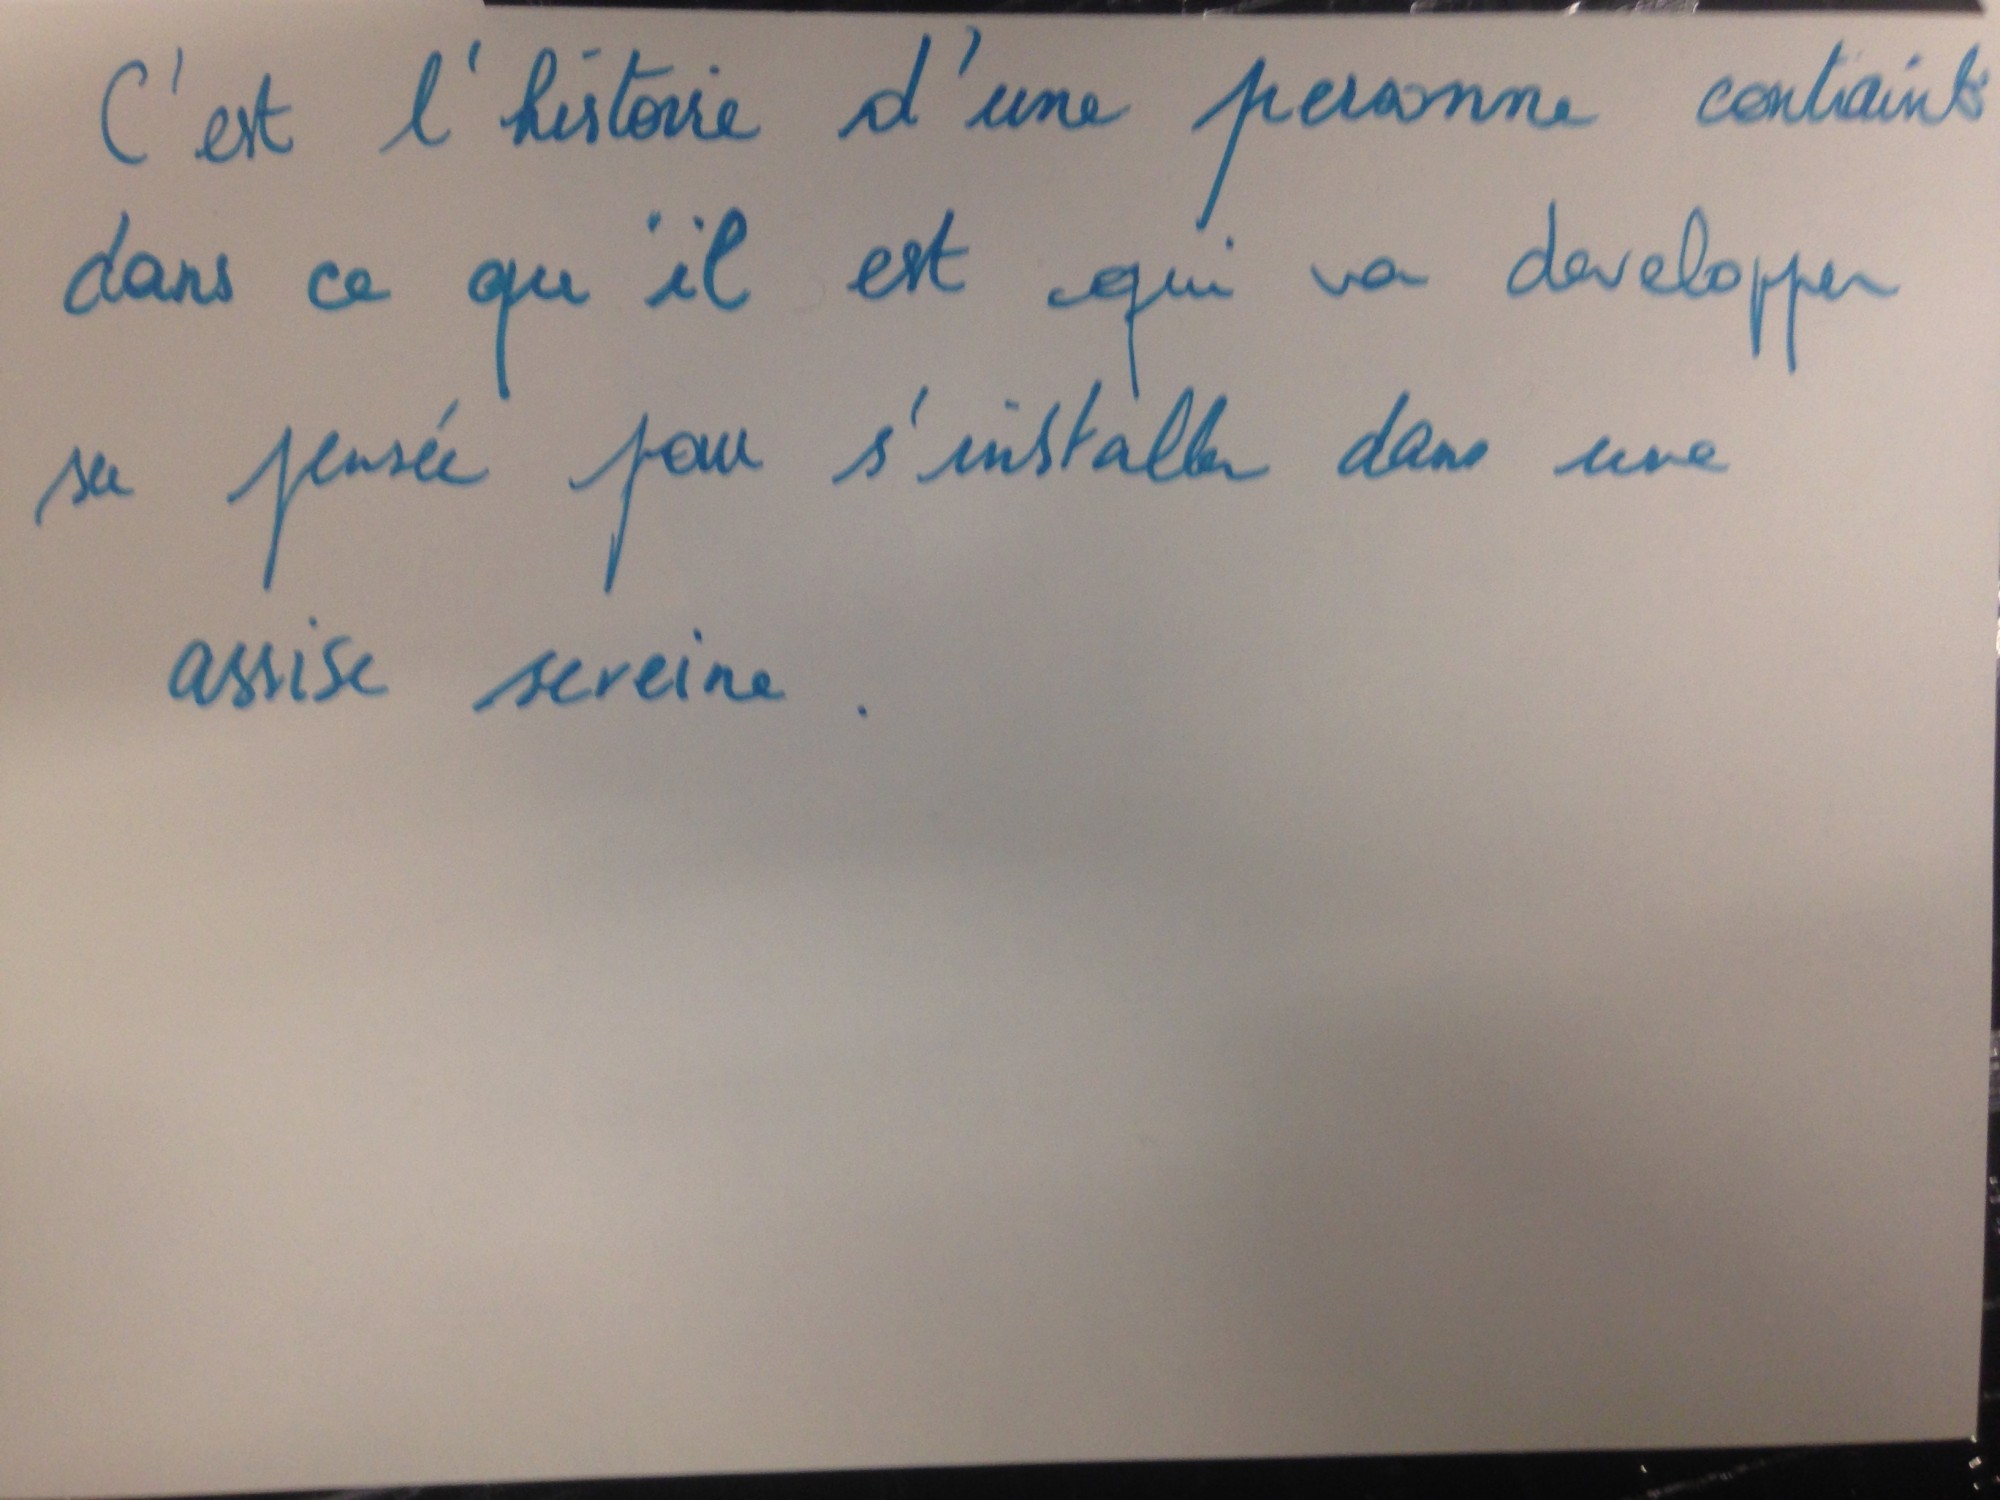 C'est l'histoire d'une personne contrainte
dans ce qu'il est qui va developper
sa pensée pour s'installer dans une
assise sereine.